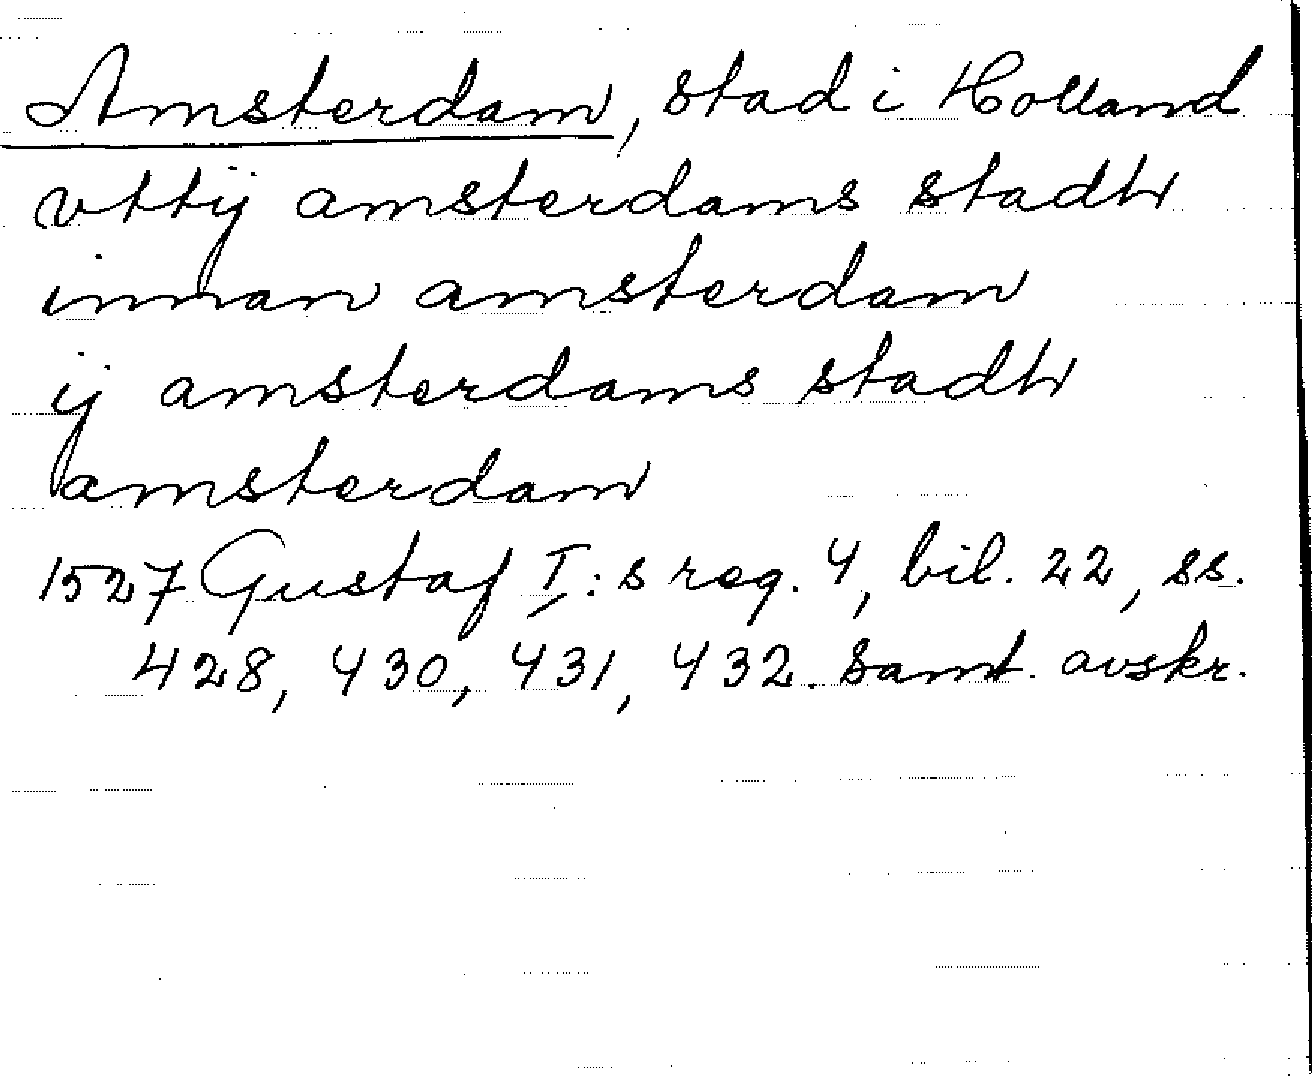 Amsterdam, stad i Holland
vttij amsterdams stadh
innan amsterdam
ij amsterdams stadh
amsterdam
1527 Gustaf I:s reg. 4, bil. 22, ss.
428, 430, 431, 432. Samt. avskr.